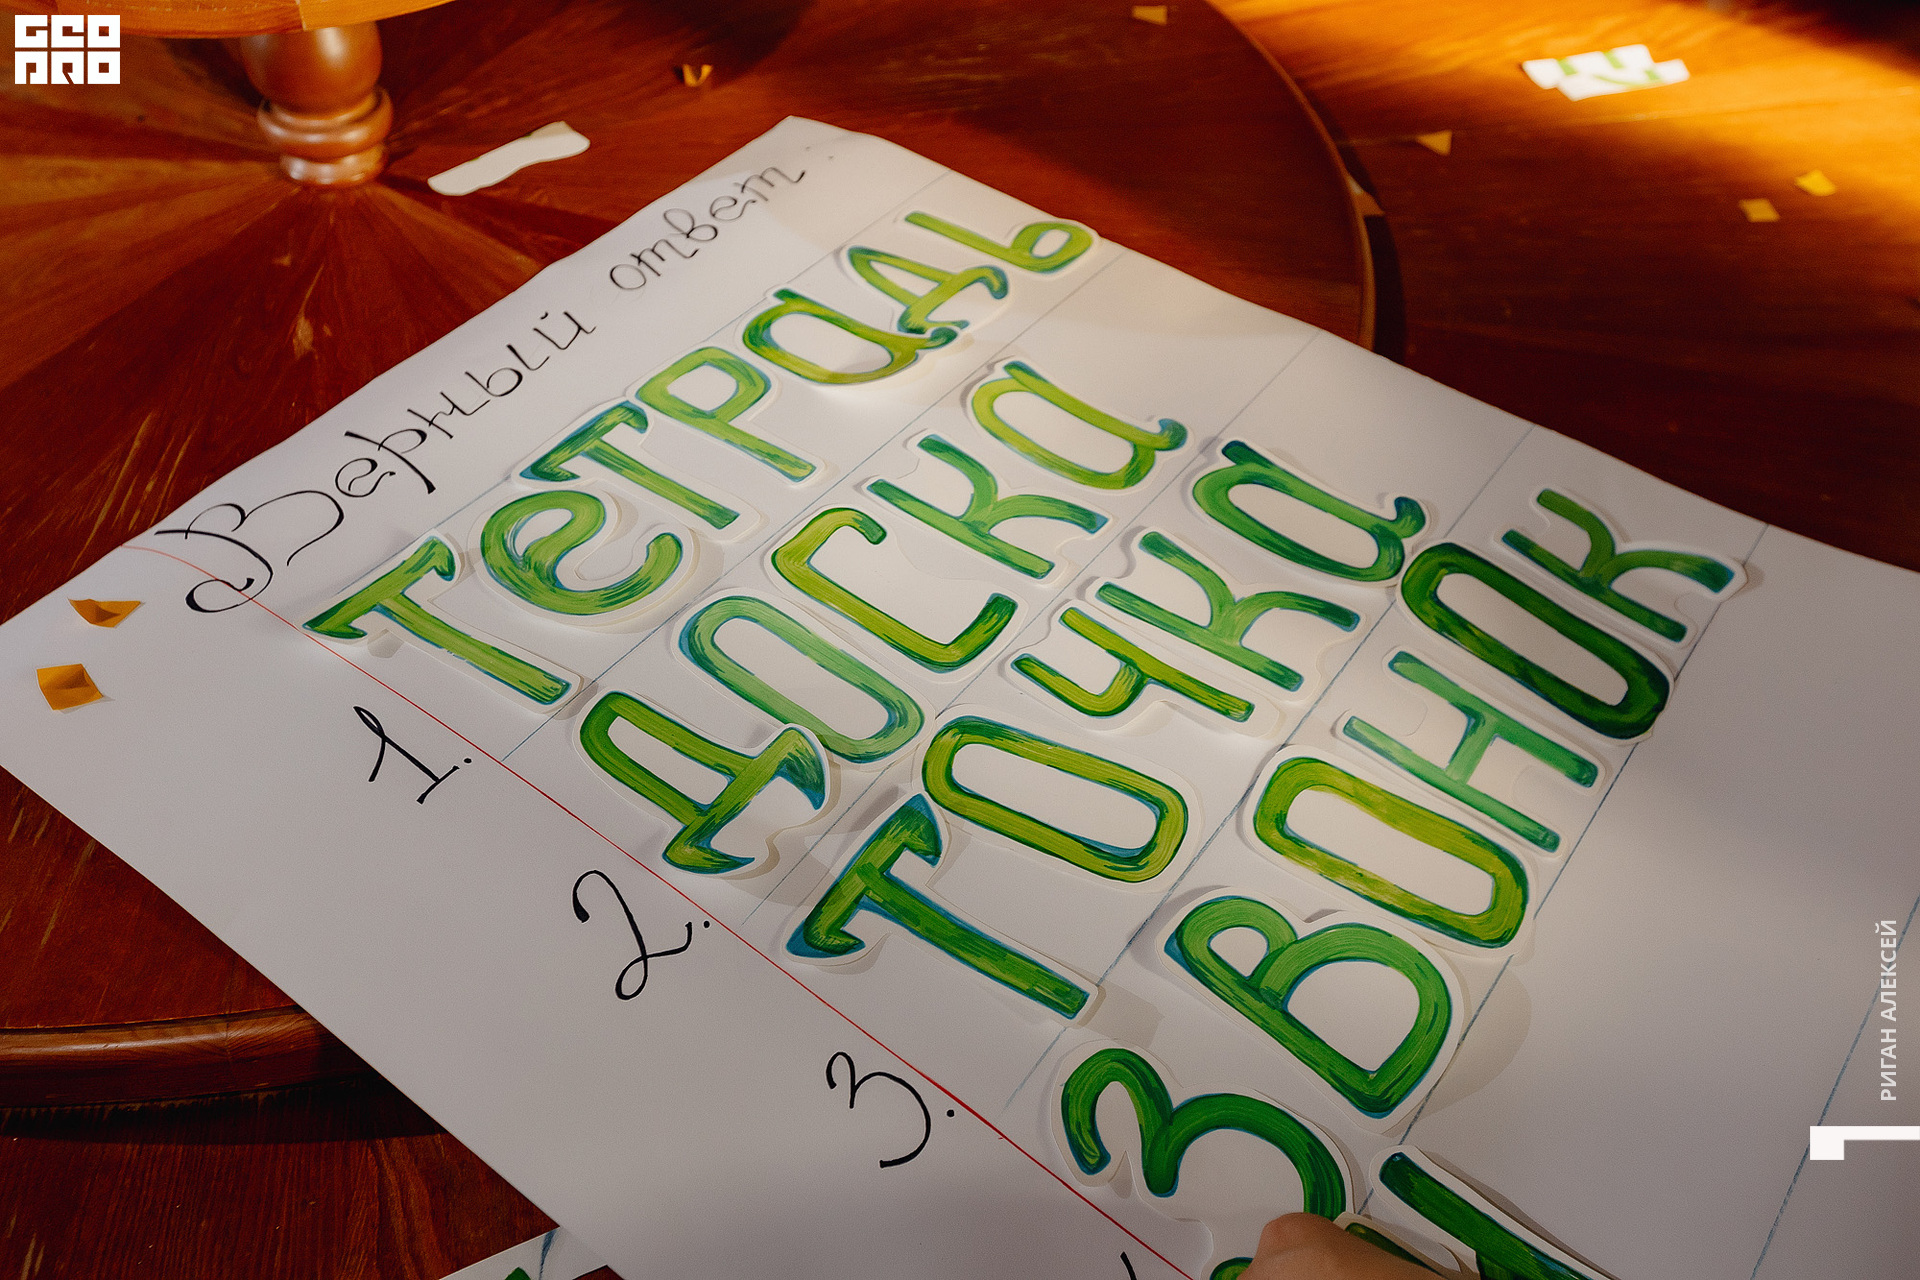 GEO
PRO
Верный ответ:
1. Тетрадь
2. Доска
3. Точка
Звонок
РИГАН АЛЕКСЕЙ